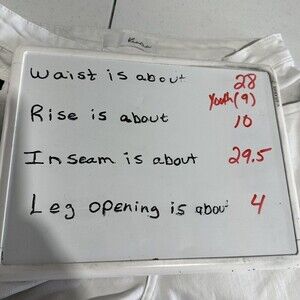 Waist is about 28
Youth (9)
Rise is about 10
Inseam is about 29.5
Leg opening is about 4